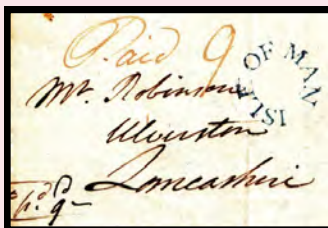 Paid 9
ISLE OF MAN
Mr. Robinson
Ulverston
Lancashire
pd 9